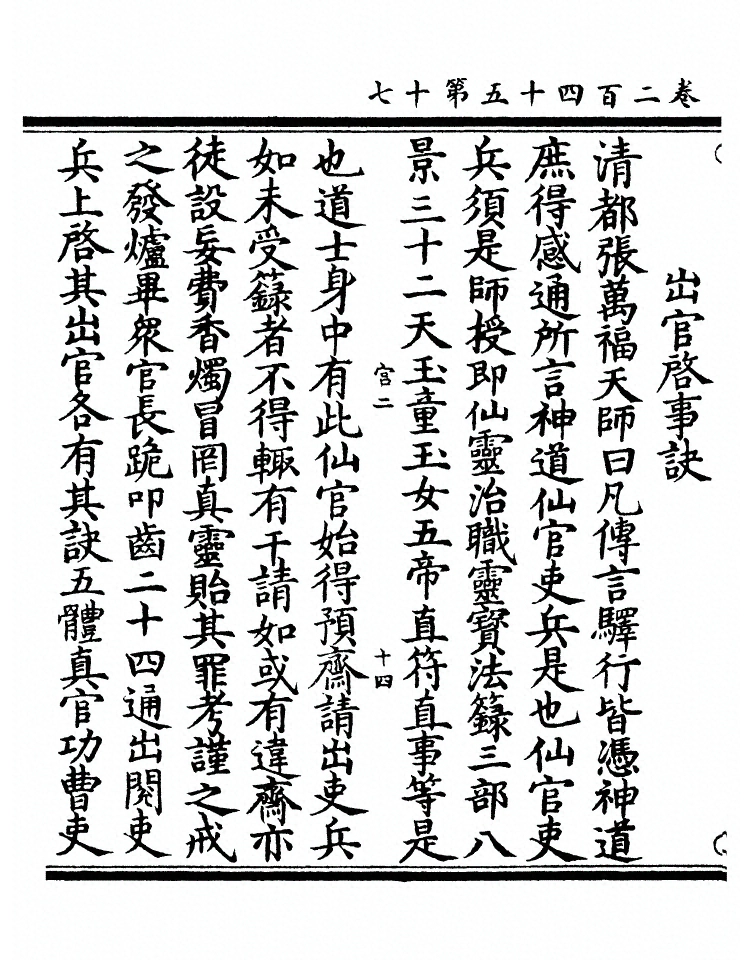 卷二百四十五第十七
出官啓事訣
清都張萬福天師曰凡傳言驛行皆憑神道
庶得感通所言神道仙官吏兵是也仙官吏
兵須是師授即仙靈治職靈寳法籙三部八
景三十二天玉童玉女五帝直符直事等是
宫二
十四
也道士身中有此仙官始得預齋請出吏兵
如未受籙者不得輙有干請如或有違齋亦
徒設妄費香燭冒罔真靈貽其罪考謹之戒
之發爐畢衆官長跪叩齒二十四通出閱吏
兵上啓其出官各有其訣五體真官功曹吏